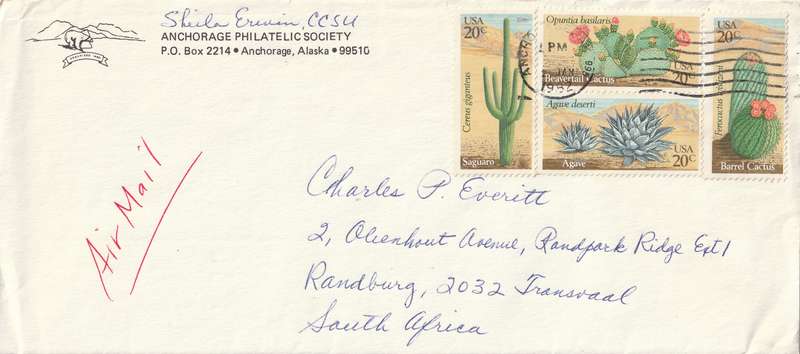 Sheila Erwin, CCSU
ANCHORAGE PHILATELIC SOCIETY
P.O. Box 2214 • Anchorage, Alaska • 99510
Air Mail
USA
20c
Cereus giganteus
Saguaro
Opuntia basilaris
USA
20c
Beavertail Cactus
Agave deserti
USA
20c
Agave
USA
20c
Ferocactus wislizeni
Barrel Cactus
PM
1982
Charles P. Everitt
2, Olienhout Avenue, Randpark Ridge Ext 1
Randburg, 2032 Transvaal
South Africa